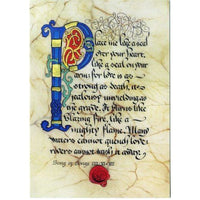 Place me like a seal
over your heart,
like a seal on your
arm: for love is as
strong as death, its
jealousy unyielding as
the grave. It burns like
blazing fire, like a
mighty flame. Many
waters cannot quench love;
rivers cannot wash it away.
Song of Songs